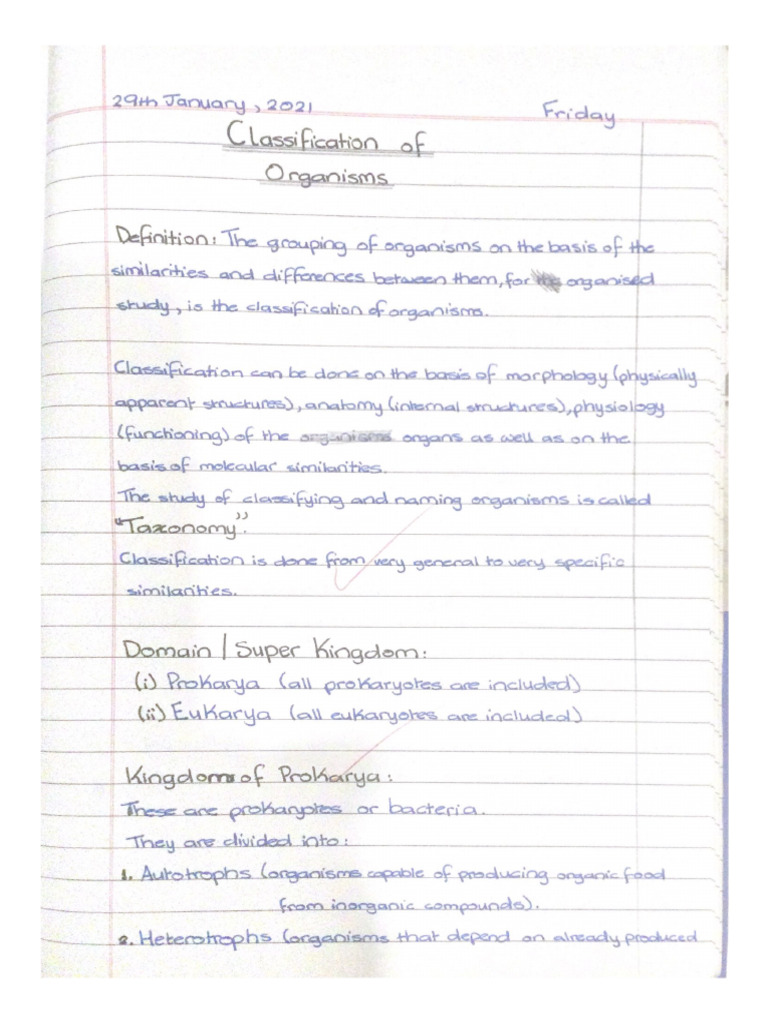 29th January, 2021 Friday
Classification of
Organisms
Definition: The grouping of organisms on the basis of the
similarities and differences between them, for organised
study, is the classification of organisms.
Classification can be done on the basis of morphology (physically
apparent structures), anatomy (internal structures), physiology
(functioning) of the organs as well as on the
basis of molecular similarities.
The study of classifying and naming organisms is called
"Taxonomy".
Classification is done from very general to very specific
similarities.
Domain / Super Kingdom:
(i) Prokarya (all prokaryotes are included)
(ii) Eukarya (all eukaryotes are included)
Kingdoms of Prokarya:
These are prokaryotes or bacteria.
They are divided into:
1. Autotrophs (organisms capable of producing organic food
from inorganic compounds).
2. Heterotrophs (organisms that depend on already produced